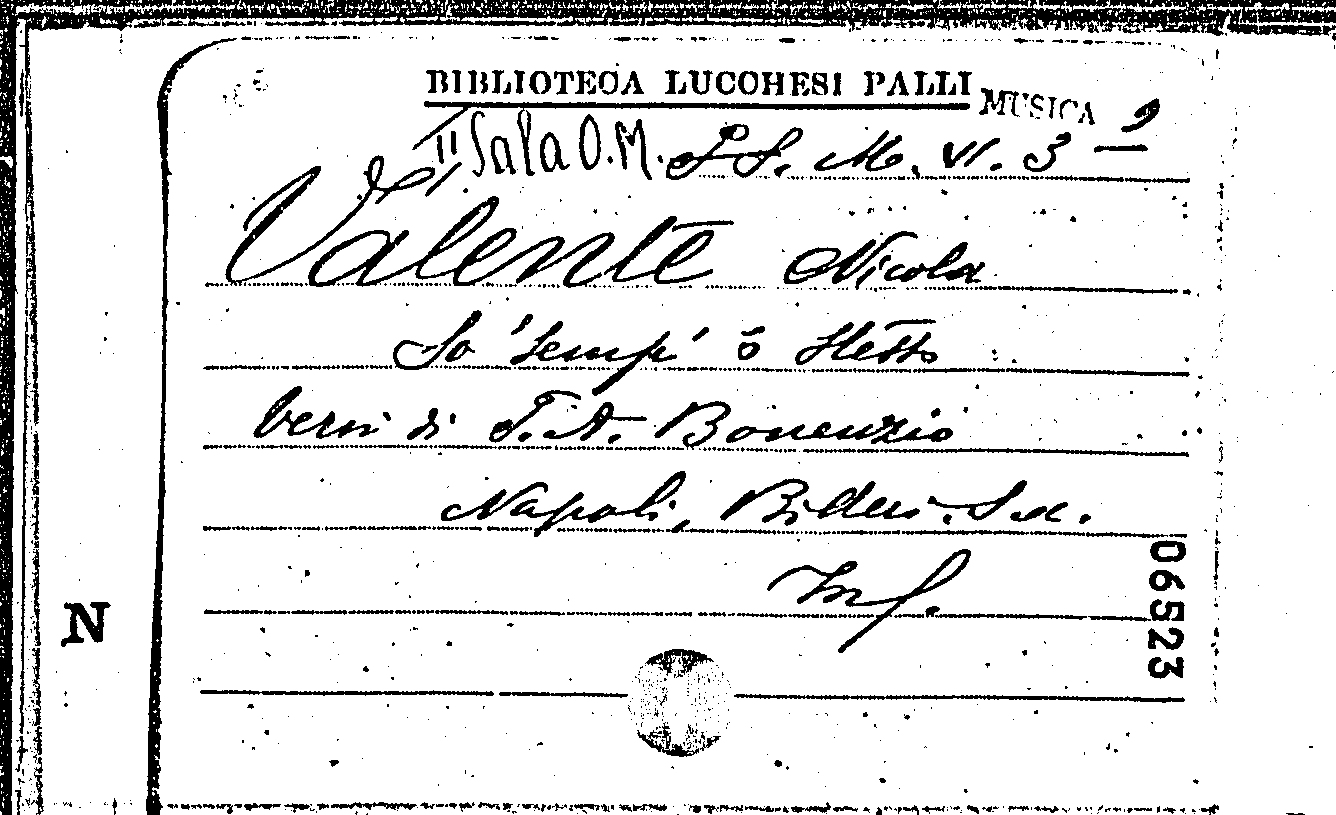 BIBLIOTECA LUCCHESI PALLI
MUSICA
II Sala O.M. S. M. VI. 3 - 9
Valente Nicola
So' semp' ō stesso
Versi di T. A. Bonenzio
Napoli, Bideri. S. d.
In f.
06523
N